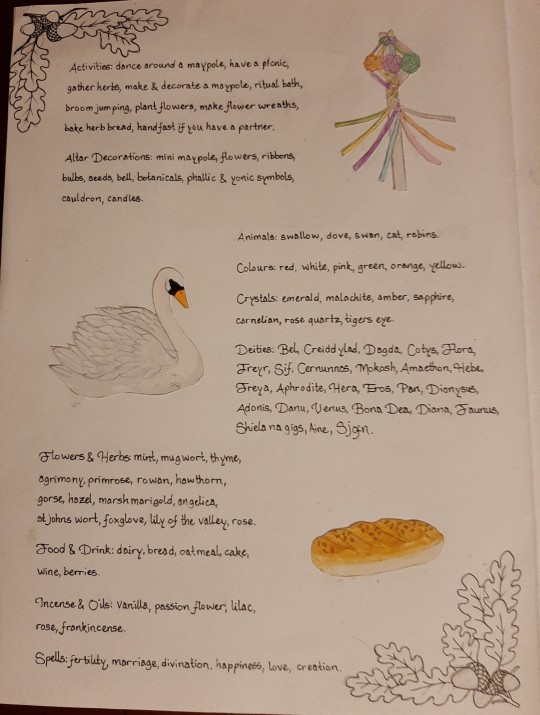 Activities: dance around a maypole, have a picnic,
gather herbs, make & decorate a maypole, ritual bath,
broom jumping, plant flowers, make flower wreaths,
bake herb bread, handfast if you have a partner.
Altar Decorations: mini maypole, flowers, ribbons,
bulbs, seeds, bell, botanicals, phallic & yonic symbols,
cauldron, candles.
Animals: swallow, dove, swan, cat, robins.
Colours: red, white, pink, green, orange, yellow.
Crystals: emerald, malachite, amber, sapphire,
carnelian, rose quartz, tigers eye.
Deities: Bel, Creiddylad, Dagda, Cotys, Flora,
Freyr, Sif, Cernunnos, Mokosh, Amaethon, Hebe,
Freya, Aphrodite, Hera, Eros, Pan, Dionysus,
Adonis, Danu, Venus, Bona Dea, Diana, Faunus,
Shiela na gigs, Aine, Sjofn.
Flowers & Herbs: mint, mugwort, thyme,
agrimony, primrose, rowan, hawthorn,
gorse, hazel, marsh marigold, angelica,
st johns wort, foxglove, lily of the valley, rose.
Food & Drink: dairy, bread, oatmeal, cake,
wine, berries.
Incense & Oils: vanilla, passion flower, lilac,
rose, frankincense.
Spells: fertility, marriage, divination, happiness, love, creation.